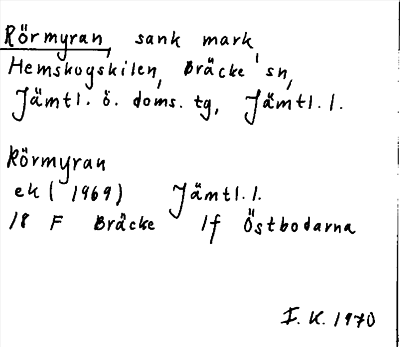 Rörmyran, sank mark
Hemskogskilen, Bräcke sn,
Jämtl. ö. doms. tg, Jämtl. l.
Rörmyran
ek (1969) Jämtl. l.
18 F Bräcke 1f Östbodarna
I. K. 1970